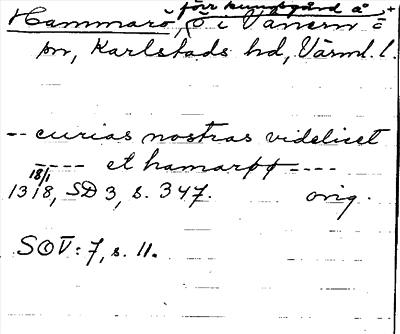 förr kungsgård å
Hammarö, ö i Vänern o +
sn, Karlstads hd, Värml. l.
-- curias nostras videlicet
---- et hamarþø ----
18/1
1318, SD 3, s. 347. orig.
SOV: 7, s. 11.